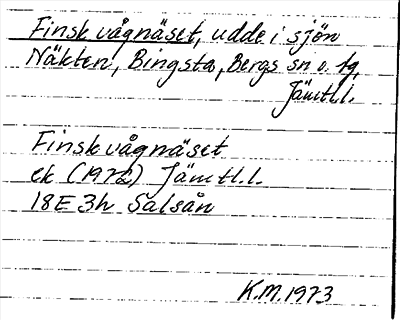 Finskvågnäset, udde i sjön
Näkten, Bingsta, Bergs sn o. tg,
Jämtl.l.
Finskvågnäset
ek (1972) Jämtl.l.
18E3h Salsån
K.M.1973